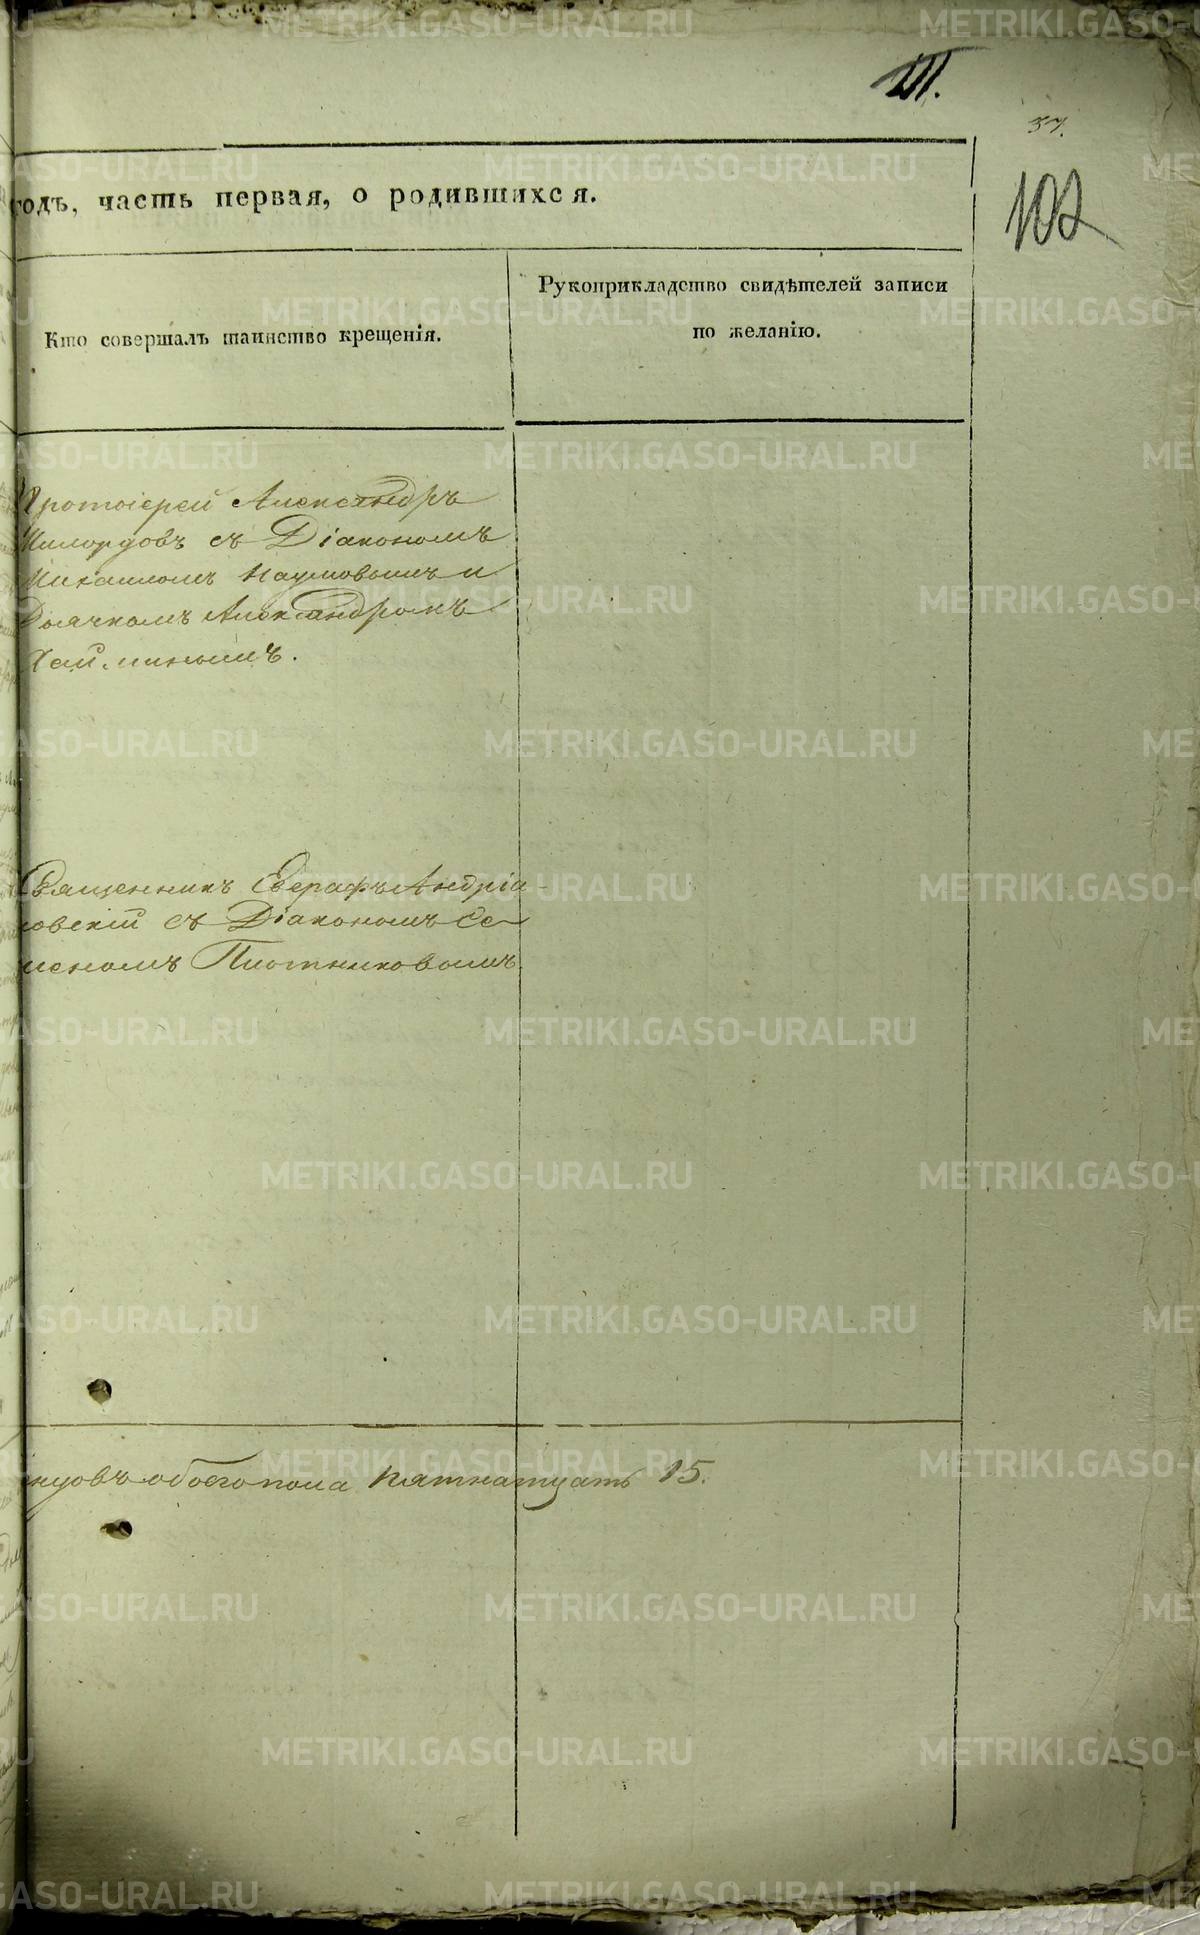 III.
37.
102
годъ, часть первая, о родившихся.
Кто совершалъ таинство крещенія.
Рукоприкладство свидѣтелей записи
по желанію.
Протоіерей Александръ
Милордовъ съ Діакономъ
Михаиломъ Наумовымъ и
Дьячкомъ Александромъ
Священникъ Евграфъ Андріа-
новскій съ Діакономъ Се
меномъ Плотниковымъ.
нцовъ обоего пола пятнатцать 15.
METRIKI.GASO-URAL.RU